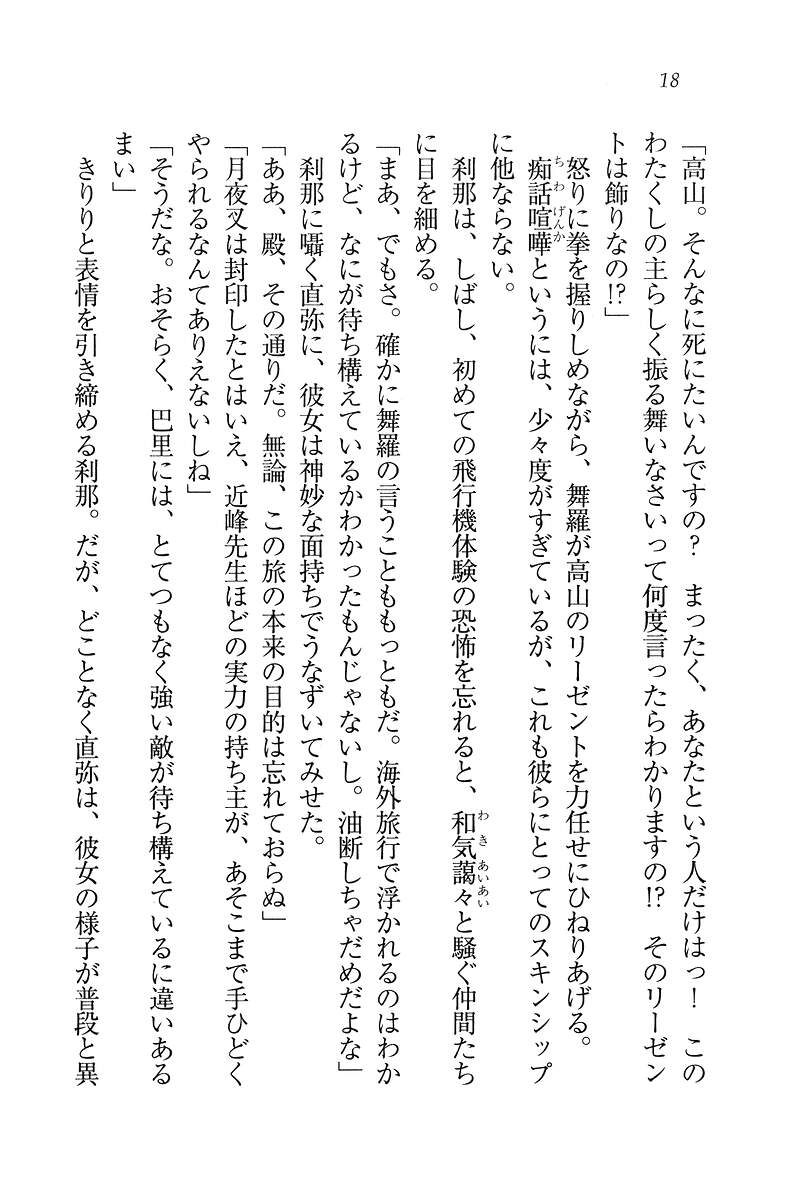 18
「高山。そんなに死にたいんですの？　まったく、あなたという人だけはっ！　この
わたくしの主らしく振る舞いなさいって何度言ったらわかりますの!?　そのリーゼン
トは飾りなの!?」
怒りに拳を握りしめながら、舞羅が高山のリーゼントを力任せにひねりあげる。
痴話喧嘩というには、少々度がすぎているが、これも彼らにとってのスキンシップ
に他ならない。
刹那は、しばし、初めての飛行機体験の恐怖を忘れると、和気藹々と騒ぐ仲間たち
に目を細める。
「まあ、でもさ。確かに舞羅の言うことももっともだ。海外旅行で浮かれるのはわか
るけど、なにが待ち構えているかわかったもんじゃないし。油断しちゃだめだよな」
刹那に囁く直弥に、彼女は神妙な面持ちでうなずいてみせた。
「ああ、殿、その通りだ。無論、この旅の本来の目的は忘れておらぬ」
「月夜叉は封印したとはいえ、近峰先生ほどの実力の持ち主が、あそこまで手ひどく
やられるなんてありえないしね」
「そうだな。おそらく、巴里には、とてつもなく強い敵が待ち構えているに違いある
まい」
きりりと表情を引き締める刹那。だが、どことなく直弥は、彼女の様子が普段と異